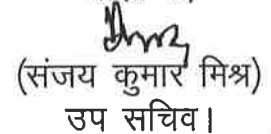 (संजय कुमार मिश्र)
उप सचिव।